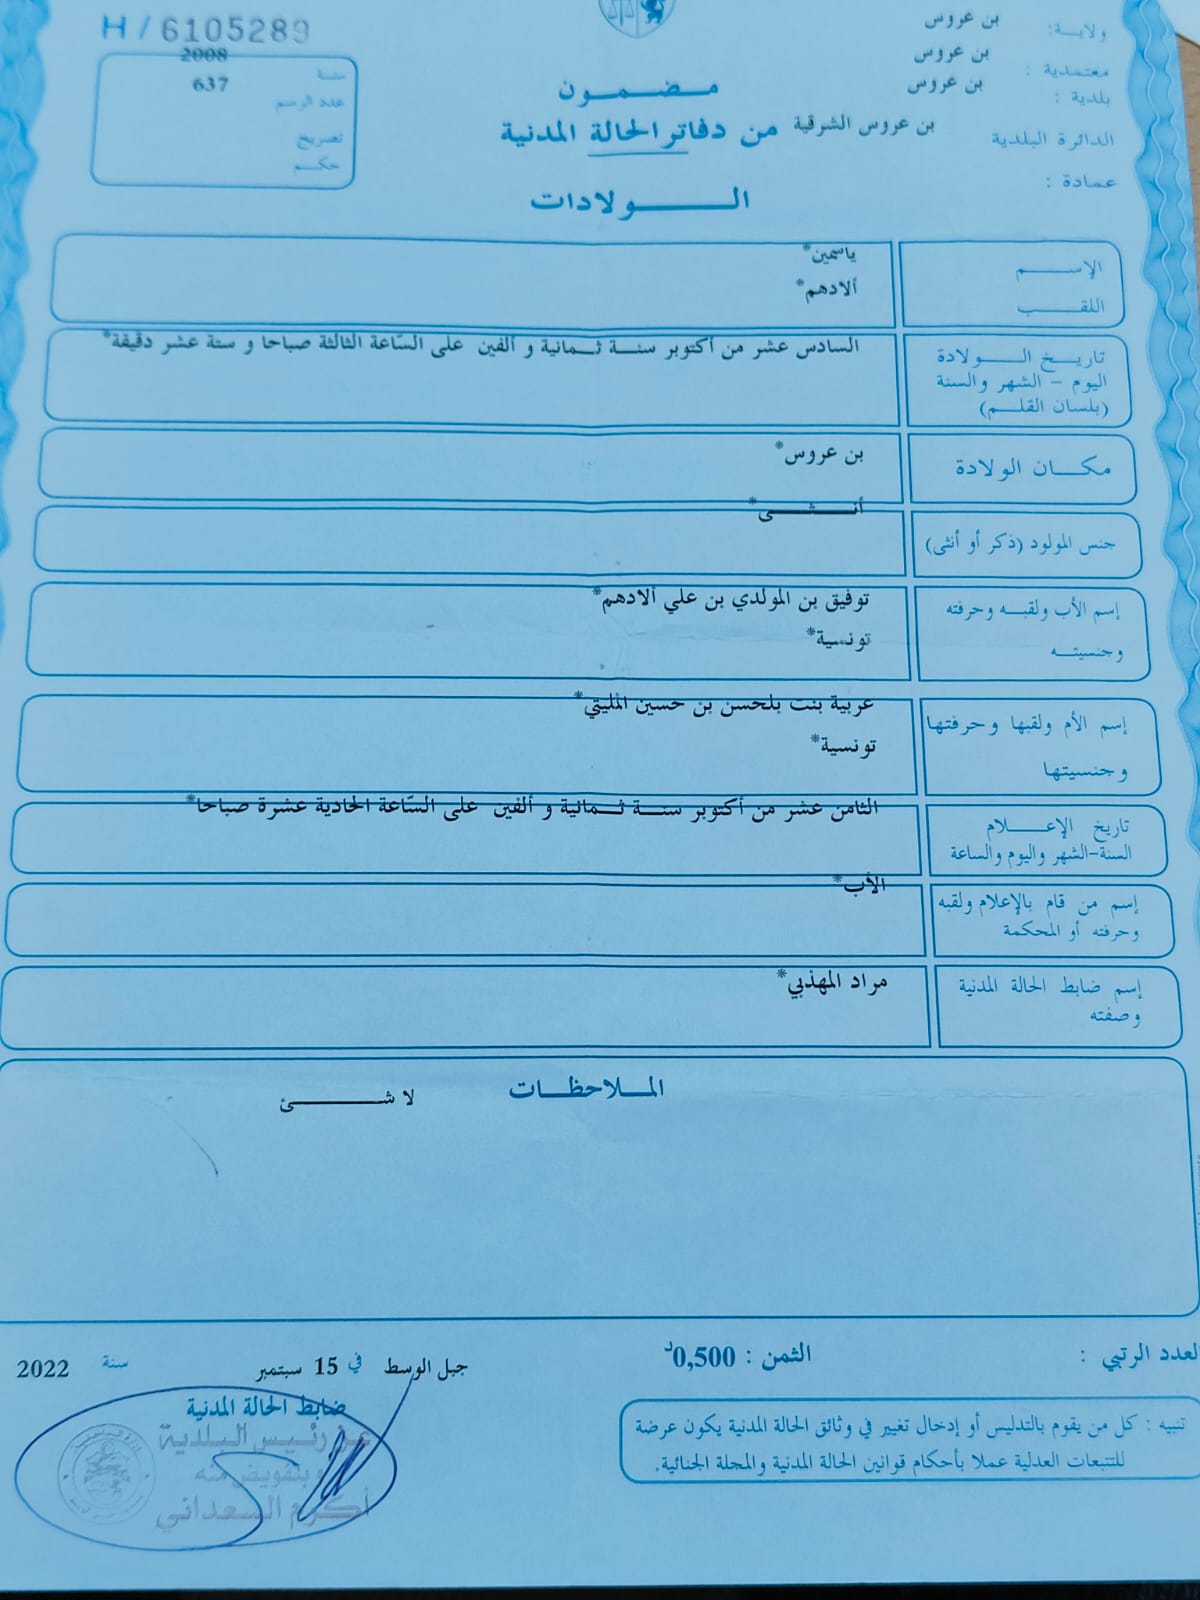 H / 6105289
سنة 2008
عدد الرسم 637
تصريح
حكم
ولاية: بن عروس
معتمدية : بن عروس
بلدية : بن عروس
الدائرة البلدية بن عروس الشرقية
عمادة :
مضمون
من دفاتر الحالة المدنية
الولادات
الإسم ياسمين*
اللقب ألادهم*
تاريخ الولادة
اليوم - الشهر والسنة
(بلسان القلم)
السادس عشر من أكتوبر سنة ثمانية و ألفين على السّاعة الثالثة صباحا و ستة عشر دقيقة*
مكان الولادة بن عروس*
جنس المولود (ذكر أو أنثى) أنثى*
إسم الأب ولقبه وحرفته
وجنسيته
توفيق بن المولدي بن علي ألادهم*
تونسية*
إسم الأم ولقبها وحرفتها
وجنسيتها
عربية بنت بلحسن بن حسين المليتي*
تونسية*
تاريخ الإعلام
السنة-الشهر واليوم والساعة
الثامن عشر من أكتوبر سنة ثمانية و ألفين على السّاعة الحادية عشرة صباحا*
إسم من قام بالإعلام ولقبه
وحرفته أو المحكمة
الأب*
إسم ضابط الحالة المدنية
وصفته
مراد المهذبي*
الملاحظات
لا شئ
العدد الرتبي :
الثمن : 0,500د
جبل الوسط في 15 سبتمبر سنة 2022
ضابط الحالة المدنية
عن رئيس البلدية
وبتفويض منه
أكرم السعداني
تنبيه : كل من يقوم بالتدليس أو إدخال تغيير في وثائق الحالة المدنية يكون عرضة
للتتبعات العدلية عملا بأحكام قوانين الحالة المدنية والمجلة الجنائية.